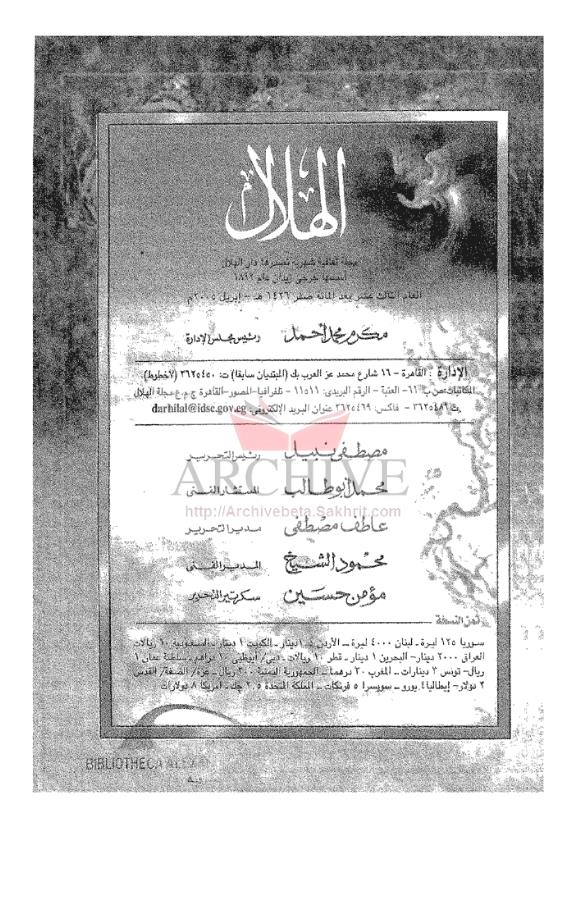 الهلال
مجلة ثقافية شهرية تصدرها دار الهلال
أسسها جرجى زيدان عام ١٨٩٢
العام الثالث عشر بعد المائة صفر ١٤٢٦ هـ - إبريل ٢٠٠٥م
مكرم محمد أحمد رئيس مجلس الإدارة
الإدارة : القاهرة - ١٦ شارع محمد عز العرب بك (المبتديان سابقا) ت: ٣٦٢٥٤٥٠ (٧ خطوط).
المكاتبات: ص.ب: ٦١- العتبة - الرقم البريدى: ١١٥١١ - تلغرافيا- المصور- القاهرة ج.م.ع مجلة الهلال
ت: ٣٦٢٥٤٨١ - فاكس: ٣٦٢٥٤٦٩ عنوان البريد الإلكترونى: darhilal@idsc.gov.eg
مصطفى نبيل رئيس التحرير
محمد أبو طالب المستشار الفنى
ARCHIVE
http://Archivebeta.Sakhrit.com
عاطف مصطفى مدير التحرير
محمود الشيخ المدير الفنى
مؤمن حسين سكرتير التحرير
ثمن النسخة
سوريا ١٢٥ ليرة - لبنان ٤٠٠٠ ليرة - الأردن دينار - الكويت ١ دينار - السعودية ١٠ ريالات
العراق ٢٠٠٠ دينار- البحرين ١ دينار - قطر ١٠ ريالات - دبى/ أبوظبى ١٠ دراهم - سلطنة عمان ١
ريال- تونس ٣ دينارات - المغرب ٣٠ درهما - الجمهورية اليمنية ٣٠٠ ريال - غزة/ الضفة/ القدس
٢ دولار- إيطاليا ٤ يورو - سويسرا ٥ فرنكات - المملكة المتحدة ٢.٥ جك - أمريكا ٨ دولارات
BIBLIOTHECA